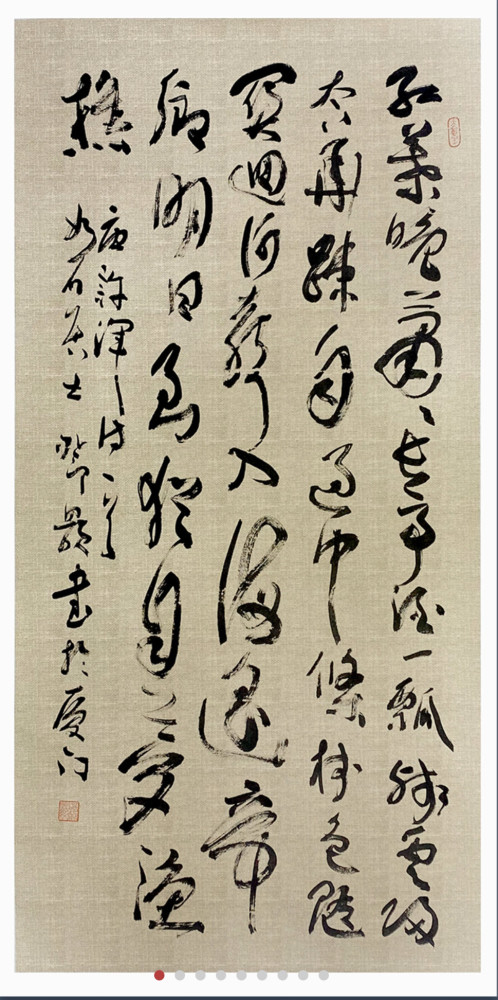 紅葉晚蕭〻長亭酒一瓢殘雲歸
太華疎雨過中條樹色隨
關迥河聲入海遙帝
鄉明日到猶自夢漁
樵
唐許渾詩
居士書於廈門